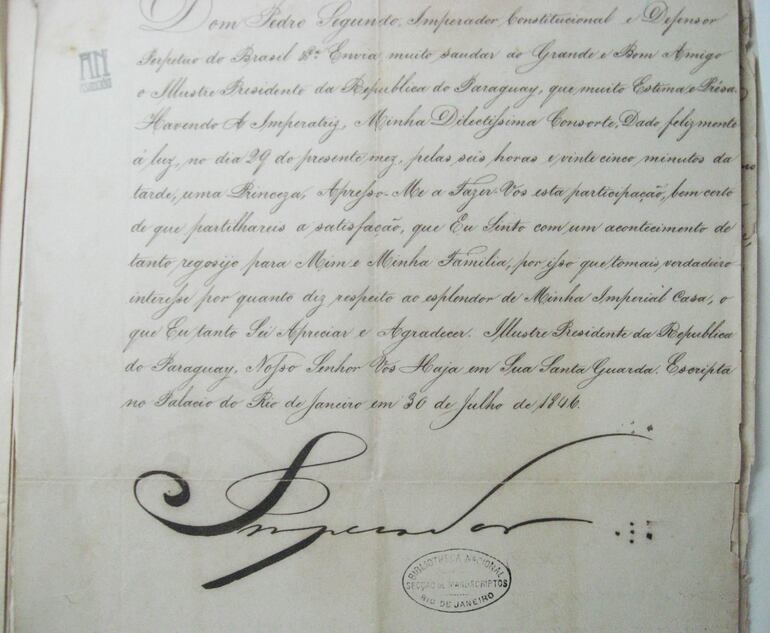 Dom Pedro Segundo, Imperador Constitucional e Defensor
Perpetuo do Brasil &ª Envia muito saudar ao Grande e Bom Amigo
o Illustre Presidente da Republica do Paraguay, que muito Estima e Présa.
Havendo A Imperatriz, Minha Dilectissima Consorte, Dado felizmente
á luz, no dia 29 do presente mez, pelas seis horas e vinte cinco minutos da
tarde, uma Princeza, Apresso-Me a Fazer-Vos esta participação, bem certo
de que partilhareis a satisfação, que Eu Sinto com um acontecimento de
tanto regosijo para Mim e Minha Familia, por isso que tomais verdadeiro
interesse por quanto diz respeito ao esplendor de Minha Imperial Casa, o
que Eu tanto Sei Apreciar e Agradecer. Illustre Presidente da Republica
do Paraguay, Nosso Senhor Vos Haja em Sua Santa Guarda. Escripta
no Palacio do Rio de Janeiro em 30 de Julho de 1846.
Imperador
BIBLIOTHECA NACIONAL
SECÇÃO DE MANUSCRIPTOS
RIO DE JANEIRO
AN